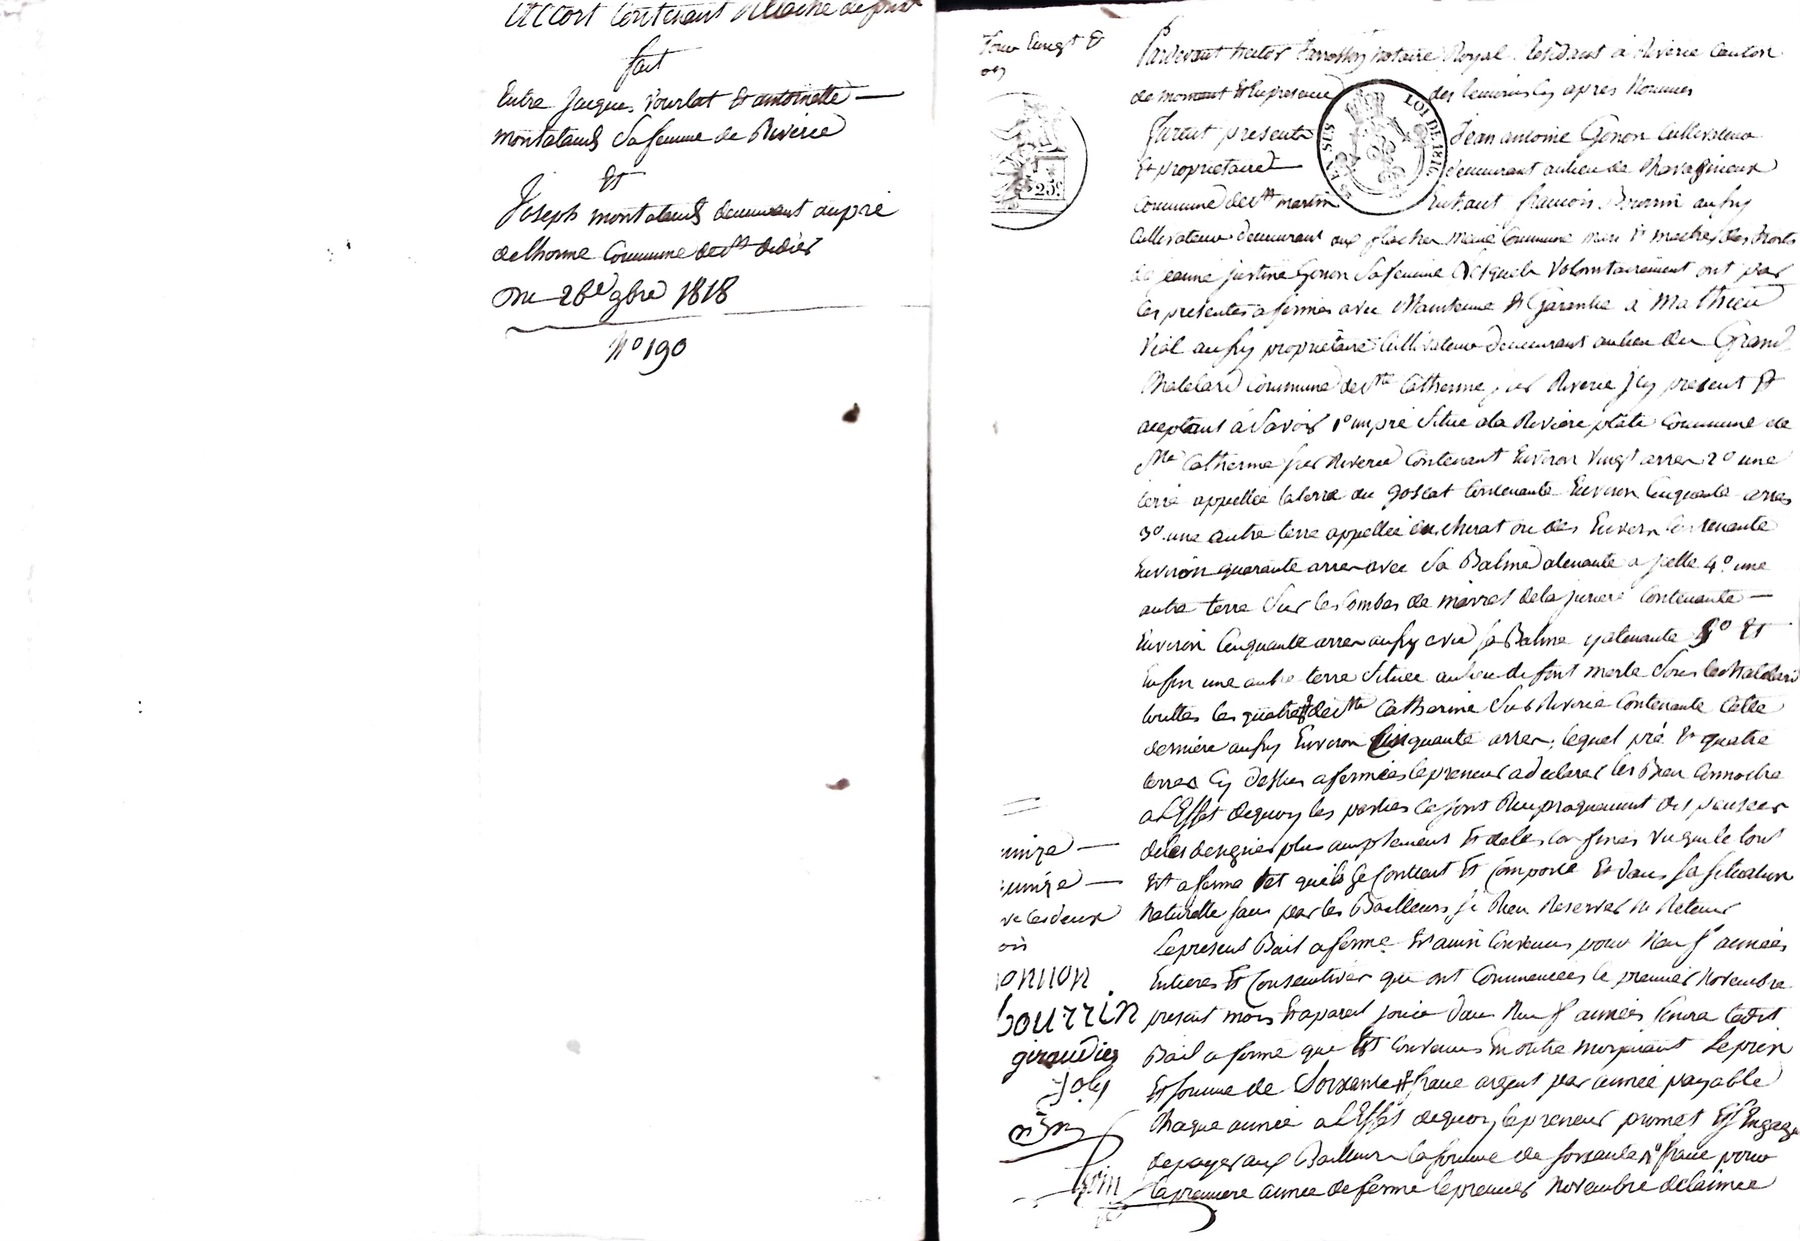 Accort Contenant Relache de prix
fait
Entre Jacques Vourlat Et antoinette —
montaland Sa femme de Riverie
Et
Joseph montaland demeurant au pré
delhorme Commune de St didier
Du 28e 9bre 1818
N° 190
Pardevant notaire Royal Résidant à Riverie Canton
de mornant Et En presence des temoins Cy apres Nommes
LOI DE 1816
25c
furent presents Jean antoine Gonon Cultivateur
Et proprietaire demeurant au lieu de Chavagneux
Commune de St martin Et françois Bourrin aussy
Cultivateur demeurant aux flaches meme Commune mari Et maitre des droits
de jeanne justine Gonon Sa femme Lesquels Volontairement ont par
les presentes afermés avec Maintenue Et Garantie à Mathieu
Vial aussy proprietaire Cultivateur demeurant au lieu du Grand
Chatelard Commune de Ste Catherine sur Riverie Icy present Et
aceptant à Savoir 1° un pré Situé a la Riviere plate Commune de
Ste Catherine sur Riverie Contenant Environ Vingt arres 2° une
terre appellée la terre du Contenante Environ Cinquante arres
3° une autre terre appellée du ou des Contenante
Environ quarante arres avec Sa Balme atenante a jcelle 4° une
autre terre Sur les Combes de de la Contenante —
Environ Cinquante arres aussy avec sa Balme y atenante 5° Et
Enfin une autre terre Située au lieu de font merle Sous le Chatelard
touttes les quatre de Ste Catherine Sur Riverie Contenante Cette
derniere aussy Environ Cinquante arres, lequel pré Et quatre
terres Cy dessus afermées le preneur a declarer les Bien Connoitre
a L'Effet dequoy les parties Ce sont Reciproquement dispensées
de les designer plus amplement Et de les Confiner Vu que le tout
Est afermé tel quils Se Contient Et Comporte Et dans sa Situation
Naturelle sans par les Bailleurs ji Rien Reserver ni Retenir
Le present Bail a ferme Et ainsi Convenus pour Neuf années
Entieres Et Consecutives qui ont Commencées le premier Novembre
present mois Et a pareil jour dans Neuf années finira Ledit
Bail a ferme qui Est Convenus En outre moyenant Le prix
Et somme de Soixante franc argent par année payable
Chaque année a L'Effet dequoy le preneur promet Et S'Engage
de payer aux Bailleurs la somme de soixante franc pour
la premiere année de ferme le premier Novembre de l'année
onnon
bourrin
giraudier
Joly